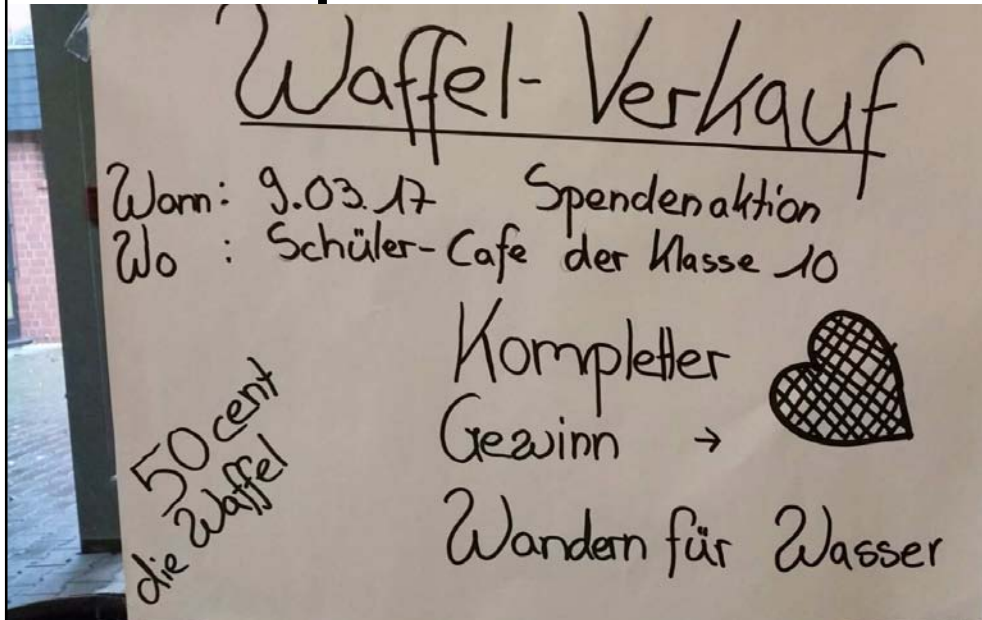 Waffel-Verkauf
Wann: 9.03.17 Spendenaktion
Wo : Schüler-Cafe der Klasse 10
Kompletter
Gewinn →
Wandern für Wasser
50 cent
die Waffel